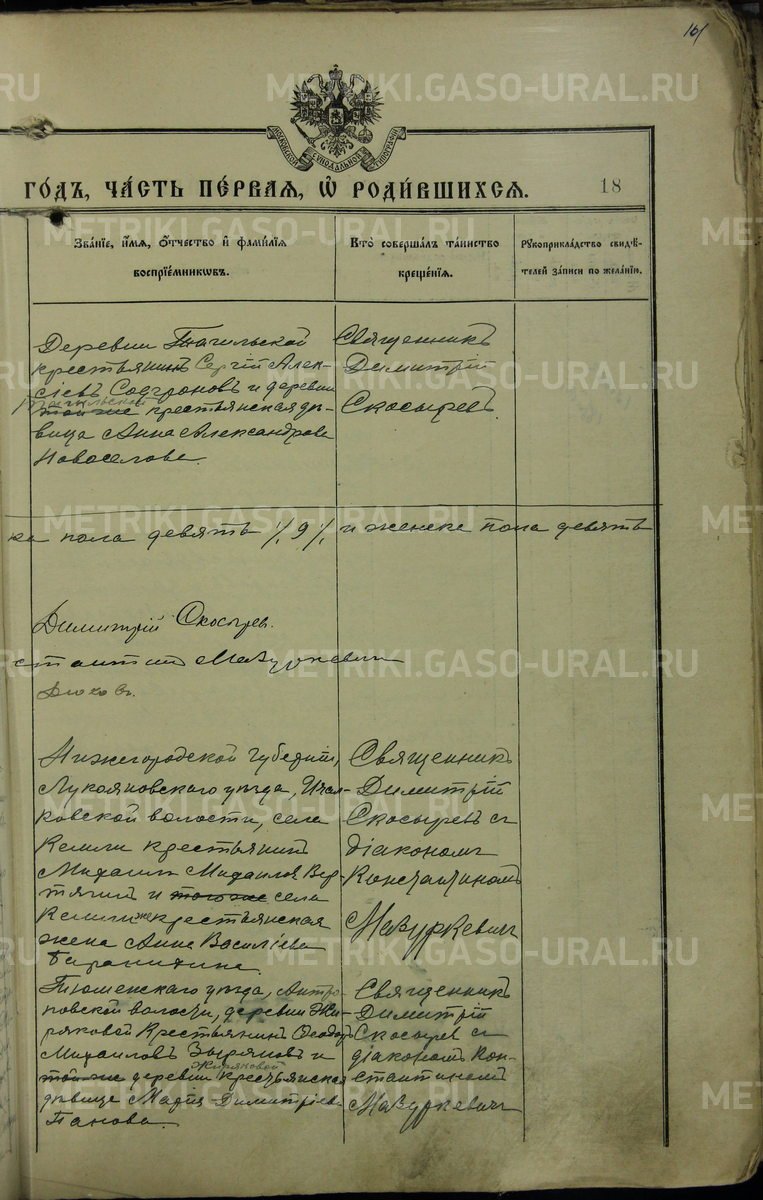 101
METRIKI.GASO-URAL.RU
МОСКОВСКОЙ СѴНОДАЛЬНОЙ ТИПОГРАФІИ
ГОДЪ, ЧАСТЬ ПЕРВАЯ, Ѡ РОДИВШИХСЯ.
18
Званіе, имя, отчество и фамилія
воспріемниковъ.
Кто совершалъ таинство
крещенія.
Рукоприкладство свидѣ-
телей записи по желанію.
Деревни Тагильской
крестьянинъ Сергій Алек-
сіевъ Софроновъ и деревни
Тагильской
той же крестьянская дѣ-
вица Анна Александрова
Новоселова.
Священникъ
Димитрій
Скосыревъ.
ка пола девять /, 9 /, и женска пола девять
Димитрій Скосырев.
стантин Мазуркевич
Дюковъ.
Нижегородской губерніи,
Лукояновскаго уѣзда, Ичал-
ковской волости, села
Кемли крестьянинъ
Михаилъ Михаиловъ Вер-
тячий и того же села
Кемли же крестьянская
жена Анна Васильева
Священникъ
Димитрій
Скосыревъ съ
діакономъ
Константиномъ
Мазуркевичъ
Тюменскаго уѣзда, Антро-
повской волости, деревни Жи-
ряковой крестьянинъ Ѳеодоръ
Михаиловъ Зыряновъ и
Жиряковой
той же деревни крестьянская
дѣвица Марія Димитріева
Панова.
Священникъ
Димитрій
Скосыревъ съ
діакономъ Кон-
стантиномъ
Мазуркевичъ